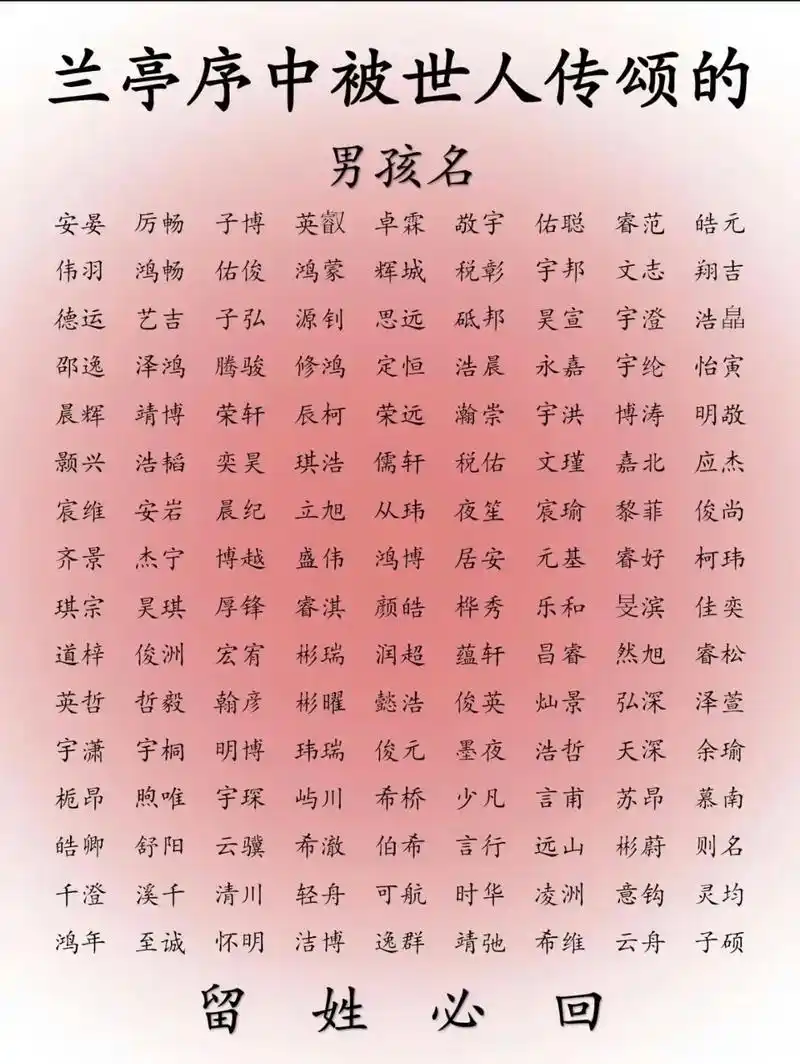 兰亭序中被世人传颂的
男孩名
安晏 厉畅 子博 英叡 卓霖 敬宇 佑聪 睿范 皓元
伟羽 鸿畅 佑俊 鸿蒙 辉城 税彰 宇邦 文志 翔吉
德运 艺吉 子弘 源钊 思远 砥邦 昊宣 宇澄 浩皛
邵逸 泽鸿 腾骏 修鸿 定恒 浩晨 永嘉 宇纶 怡寅
晨辉 靖博 荣轩 辰柯 荣远 瀚崇 宇洪 博涛 明敬
颢兴 浩韬 奕昊 琪浩 儒轩 税佑 文瑾 嘉北 应杰
宸维 安岩 晨纪 立旭 从玮 夜笙 宸瑜 黎菲 俊尚
齐景 杰宁 博越 盛伟 鸿博 居安 元基 睿好 柯玮
琪宗 昊琪 厚锋 睿淇 颜皓 桦秀 乐和 旻滨 佳奕
道梓 俊洲 宏宥 彬瑞 润超 蕴轩 昌睿 然旭 睿松
英哲 哲毅 翰彦 彬曜 懿浩 俊英 灿景 弘深 泽萱
宇潇 宇桐 明博 玮瑞 俊元 墨夜 浩哲 天深 余瑜
栀昂 煦唯 宇琛 屿川 希桥 少凡 言甫 苏昂 慕南
皓卿 舒阳 云骥 希澈 伯希 言行 远山 彬蔚 则名
千澄 溪千 清川 轻舟 可航 时华 凌洲 意钩 灵均
鸿年 至诚 怀明 洁博 逸群 靖弛 希维 云舟 子硕
留姓必回